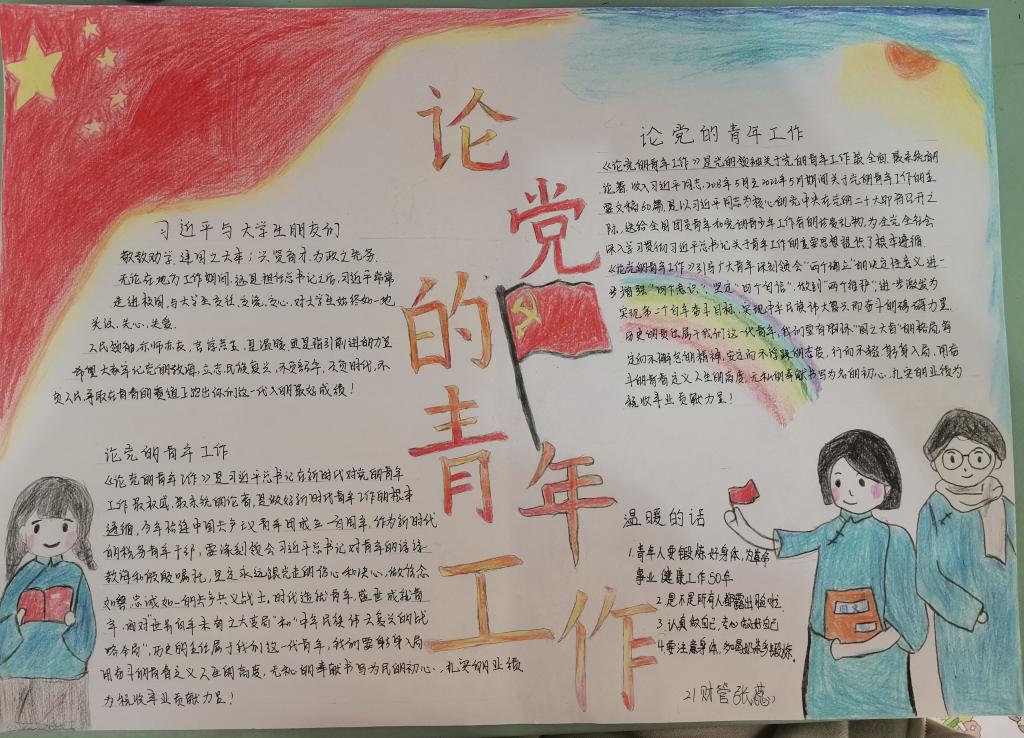 论党的青年工作
习近平与大学生朋友们
敬教劝学，建国之大本；兴贤育才，为政之先务。
无论在地方工作期间，还是担任总书记之后，习近平常常
走进校园，与大学生交往、交流、交心，对大学生始终如一地
关注、关心、关爱。
人民领袖，亦师亦友，言谆意
希望大家牢记党的教诲，立志民族复兴，不负韶华，不负时代，不
负人民，争取在青春的赛道上跑出你们这一代人的最好成绩！
论党的青年工作
《论党的青年工作》是习近平总书记在新时代对党的青年
工作最权威、最系统的论著，是做好新时代青年工作的根本
遵循，今年恰逢中国共产主义青年团成立一百周年，作为新时代
的税务青年干部，要深刻领会习近平总书记对青年的谆谆
教诲和殷殷嘱托，坚定永远跟党走的信心和决心，做信念
如磐、忠诚如一的共产主义战士。时代造就青年，盛世成就青
年，面对世界百年未有之大变局"和"中华民族伟大复兴的战
略全局"，历史的责任属于我们这一代青年，我们要躬身入局
用奋斗的青春定义人生的高度，无私的奉献书写为民的初心，扎实的业绩
为税收事业贡献力量！
论党的青年工作
《论党的青年工作》是党的领袖关于党的青年工作最全面、最系统的
论著，收入习近平同志，2013年5月至2022年5月期间关于党的青年工作的主
要文稿60篇，是以习近平同志为核心的党中央在党的二十大即将召开之
际，送给全国团员青年和党的青少年工作者的珍贵礼物，为全党全社会
深入学习贯彻习近平总书记关于青年工作的重要思想提供了根本遵循。
《论党的青年工作》引导广大青年深刻领会"两个确立"的决定性意义，进一
步增强"四个意识"、坚定"四个自信"、做到"两个维护"，进一步激发为
实现第二个百年奋斗目标、实现中华民族伟大复兴而奋斗的磅礴力量。
历史的责任属于我们这一代青年，我们要有胸怀"国之大者"的格局，笃
定而不懈怠的精神，安定而不浮躁的态度，行而不辍，躬身入局，用奋
斗的青春定义人生的高度，无私的奉献书写为民的初心，扎实的业绩为
税收事业贡献力量！
温暖的话
1.青年人要锻炼好身体，为革命
事业健康工作50年
2.是不是所有人都露出脸啦
3.认真做自己，安心做好自己
4.要注意身体，多喝奶茶多锻炼。
21财管张蕊